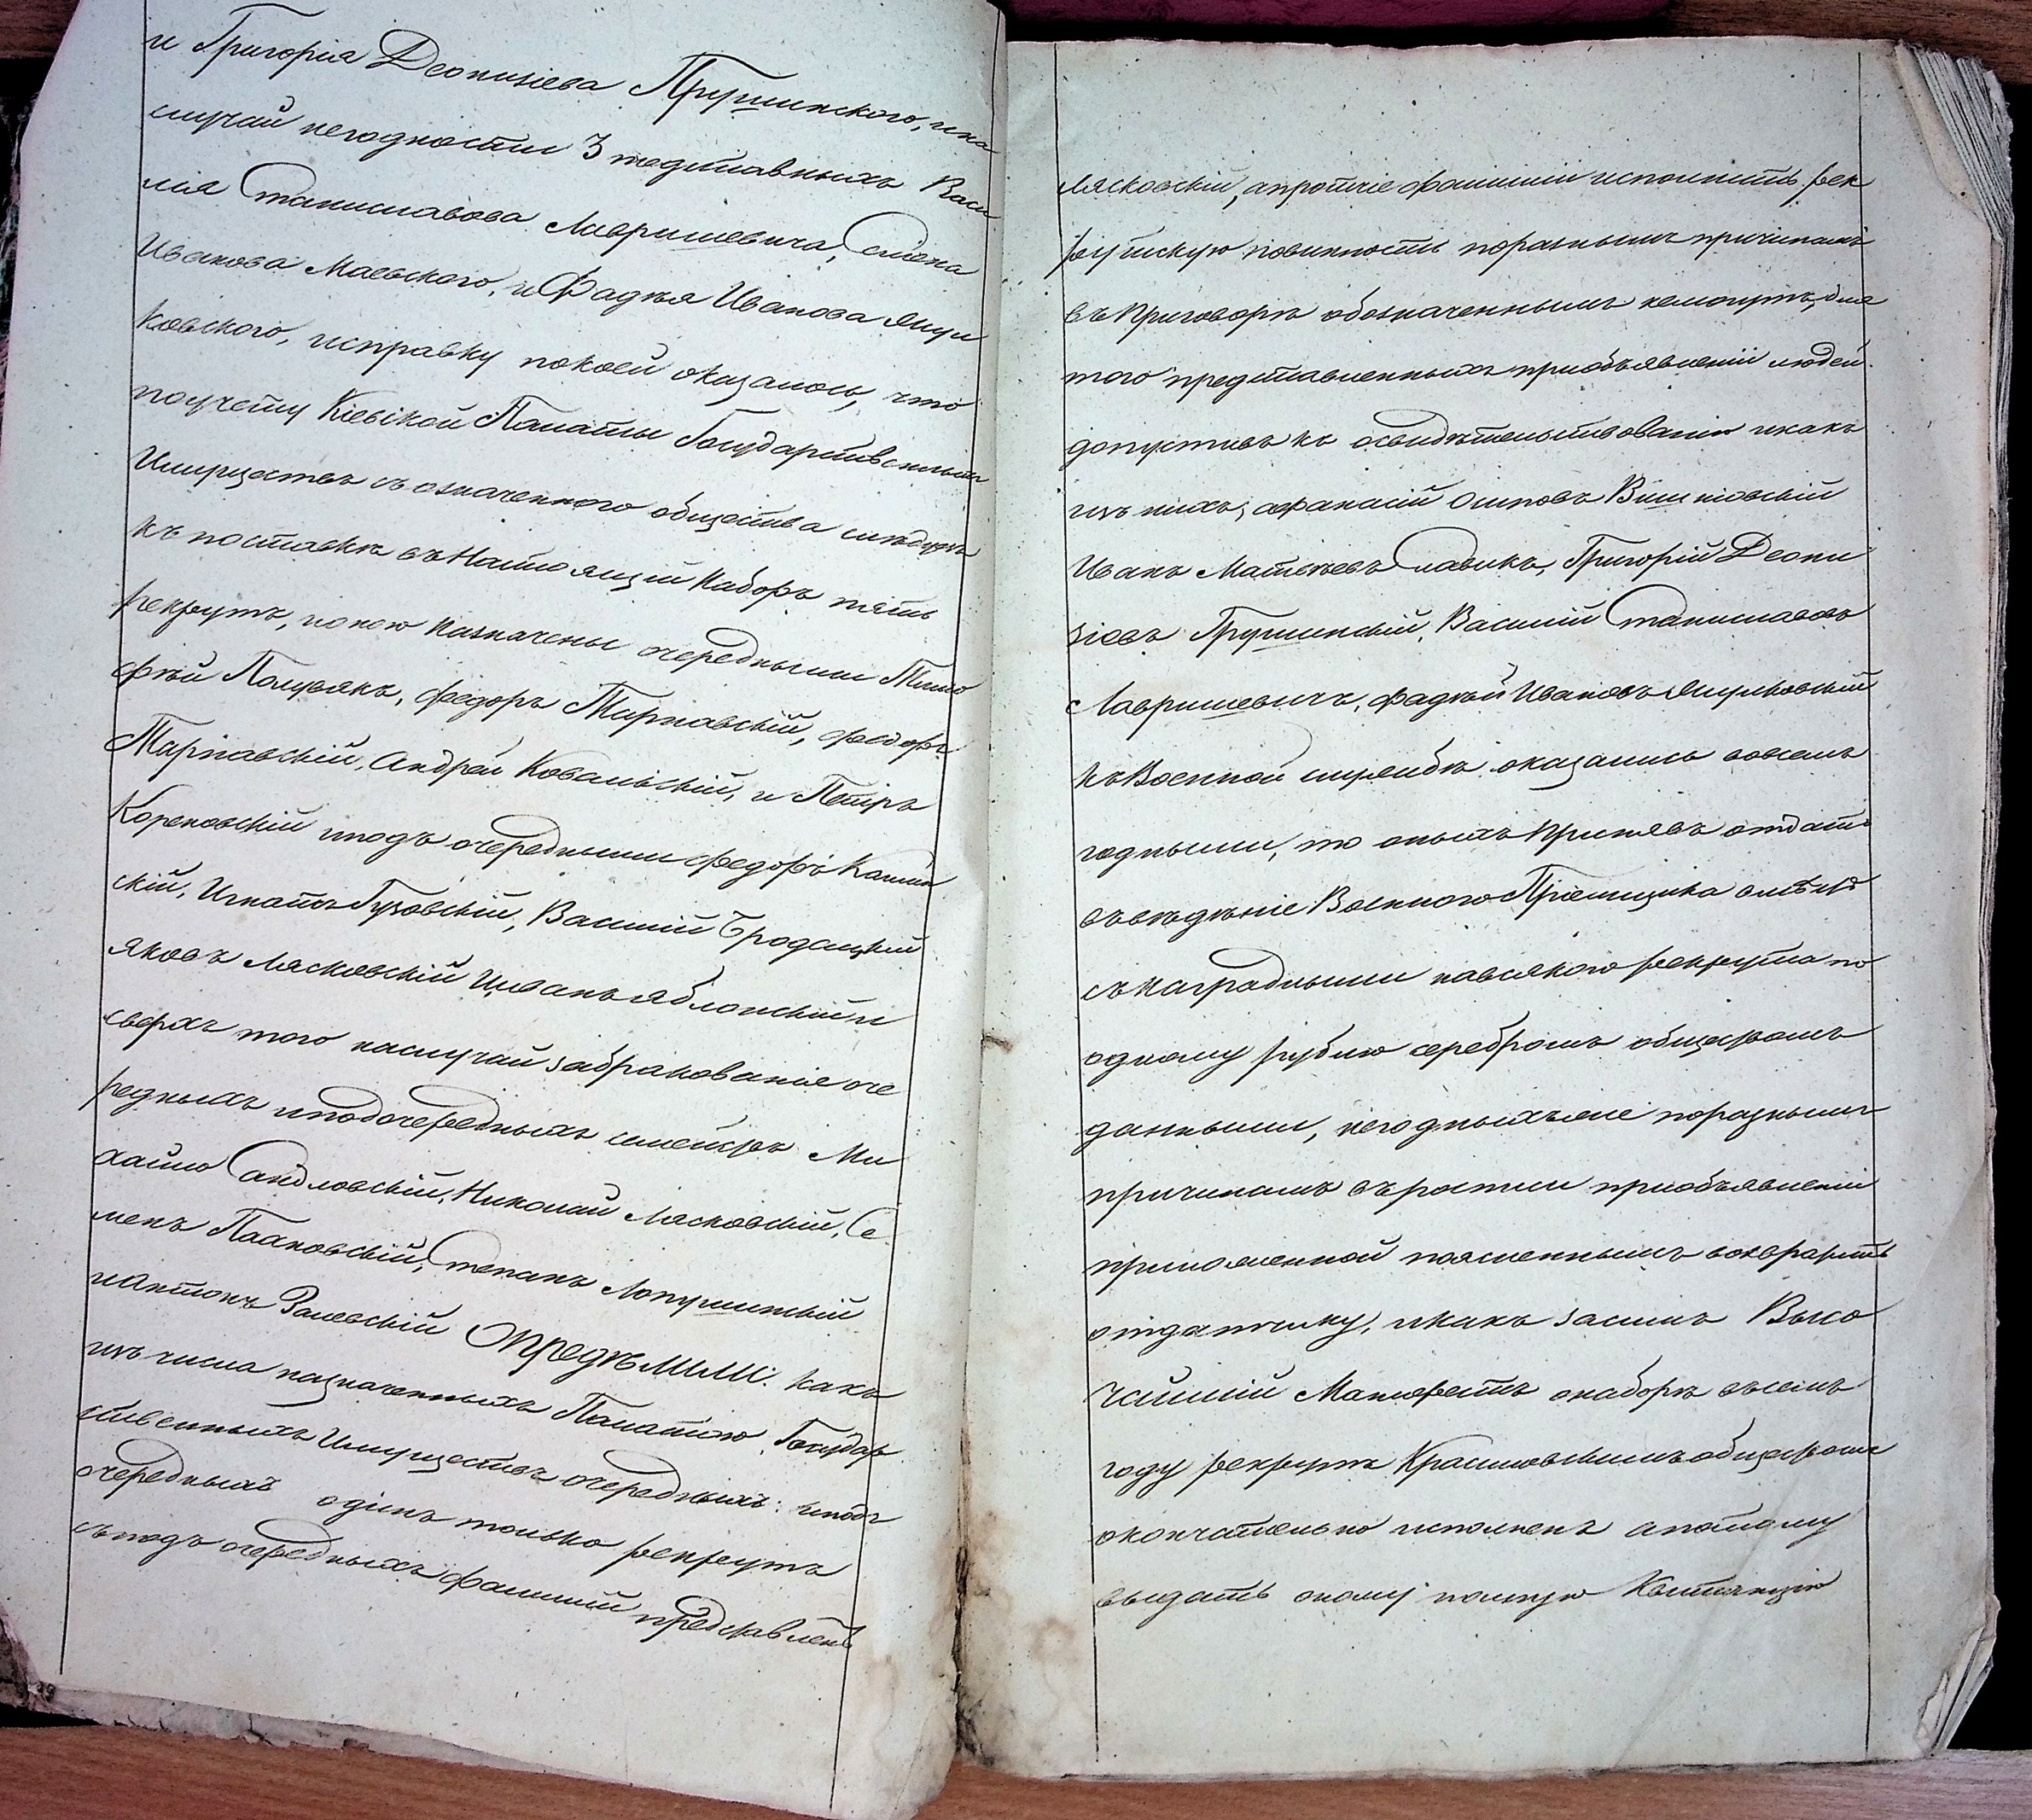 и Григорія Деонизіева Грушинского, и на
случай негодности 3 подставныхъ Васи
лія Станиславова Лавришевича, Семена
Иванова Маевского, и Фадѣя Иванова Янул
ковского, исправку покоей оказалось, что
поучету Кіевской Палаты Государственныхъ
Имуществъ съ означенного общества слѣдуетъ
къ поставкѣ въ Настоящій Наборъ пять
рекрутъ, и оною назначены очередными Тимо
фѣй Полузякъ, Федоръ Тарнавскій, Федоръ
Тарнавскій, Андрей Ковальскій, и Петръ
Кореновскій и подъ очередными Федоръ Камин
скій, Игнатъ Гузовскій, Василій Бродацкій
Яковъ Лясковскій И Иванъ Яблонскій и
сверхъ того на случай забракованіе оче
редныхъ и подочередныхъ семействъ Ми
хайло Сандловскій, Николай Лясковскій, Се
менъ Пахновскій, Степанъ Лопушинскій
и Антонъ Залевскій Опредѣлили. какъ
изъ числа назначенныхъ Палатою Государ
ственныхъ Имуществъ очередныхъ: и подъ
очередныхъ одинъ только рекрутъ
съ подъ очередныхъ фамилій представленъ
Лясковскій, а протчіе фамиліи исполнить рек
рутскую повинность по разнымъ причинамъ
въ Приговорѣ обозначеннымъ немогутъ, для
того представленныхъ при объявленіи людей
допустивъ къ освидѣтельствованію и какъ
изъ нихъ; Афанасій Осиповъ Вишніовскій
Иванъ Матвѣевъ Славикъ, Григорій Деони
зіевъ Грушинскій, Василій Станиславовъ
Лавришевичъ, Фадѣй Ивановъ Янулковскій
къ Военной службѣ оказались совсемъ
годными, то оныхъ Принявъ отдать
въ вѣдѣніе Военного Пріемщика вмѣстѣ
съ наградными на всякого рекрута по
одному рублю серебромъ обществомъ
данными, негодныхъ же по разнымъ
причинамъ въ росписи при объявленіи
приложенной поясненнымъ возвратить
отдатчику, и какъ засимъ Высо
чайшій Манифестъ о наборѣ въ семъ
году рекрутъ Красиловскимъ обществомъ
окончательно исполненъ а потому
выдать оному полную Квитанцію